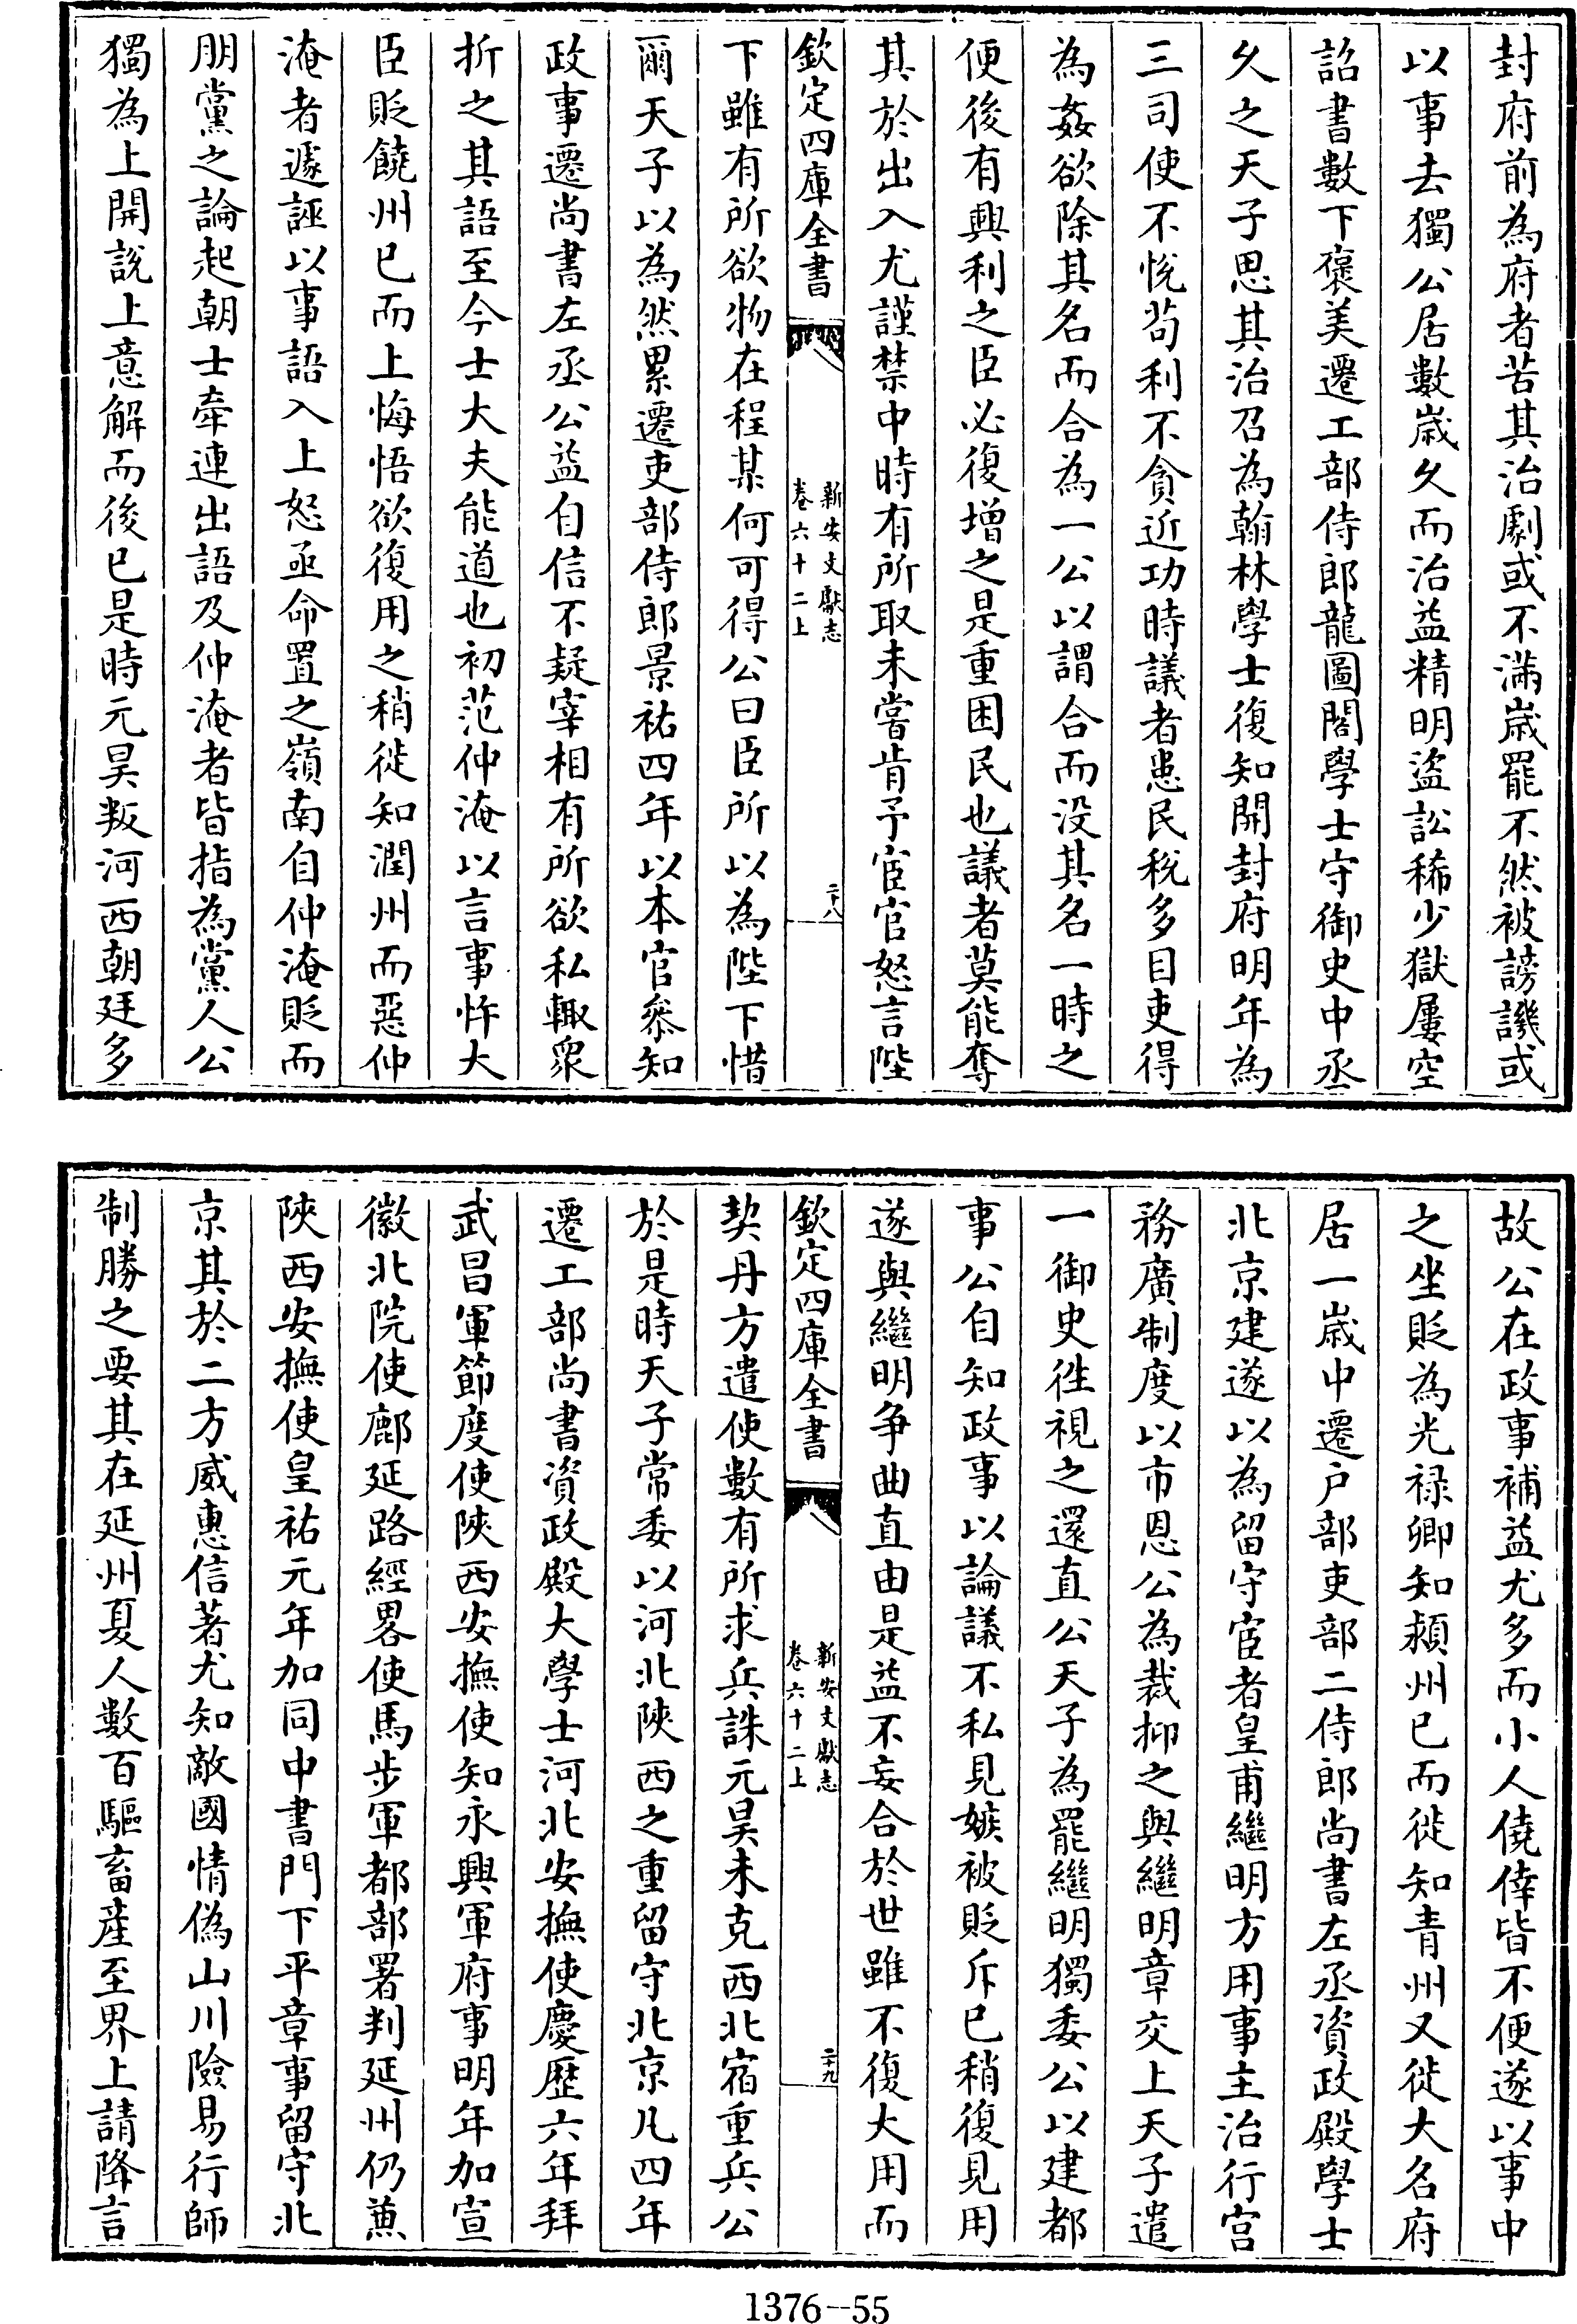 封府前為府者苦其治劇或不滿歲罷不然被謗譏或
以事去獨公居數歲久而治益精明盜訟稀少獄屢空
詔書數下褒美遷工部侍郎龍圖閣學士守御史中丞
久之天子思其治召為翰林學士復知開封府明年為
三司使不悅苟利不貪近功時議者患民稅多目吏得
為姦欲除其名而合為一公以謂合而没其名一時之
便後有興利之臣必復增之是重困民也議者莫能奪
其於出入尤謹禁中時有所取未嘗肯予宦官怒言陛
欽定四庫全書
新安文獻志
卷六十二上
二十八
下雖有所欲物在程某何可得公曰臣所以為陛下惜
爾天子以為然累遷吏部侍郎景祐四年以本官叅知
政事遷尚書左丞公益自信不疑宰相有所欲私輙衆
折之其語至今士大夫能道也初范仲淹以言事忤大
臣貶饒州已而上悔悟欲復用之稍徙知潤州而惡仲
淹者遽誣以事語入上怒亟命置之嶺南自仲淹貶而
朋黨之論起朝士牽連出語及仲淹者皆指為黨人公
獨為上開說上意解而後已是時元昊叛河西朝廷多
故公在政事補益尤多而小人僥倖皆不便遂以事中
之坐貶為光禄卿知潁州已而徙知青州又徙大名府
居一歲中遷户部吏部二侍郎尚書左丞資政殿學士
北京建遂以為留守宦者皇甫繼明方用事主治行宫
務廣制度以市恩公為裁抑之與繼明章交上天子遣
一御史徃視之還直公天子為罷繼明獨委公以建都
事公自知政事以論議不私見嫉被貶斥已稍復見用
遂與繼明争曲直由是益不妄合於世雖不復大用而
欽定四庫全書
新安文獻志
卷六十二上
二十九
契丹方遣使數有所求兵誅元昊未克西北宿重兵公
於是時天子常委以河北陜西之重留守北京凡四年
遷工部尚書資政殿大學士河北安撫使慶歷六年拜
武昌軍節度使陜西安撫使知永興軍府事明年加宣
徽北院使鄜延路經畧使馬步軍都部署判延州仍兼
陜西安撫使皇祐元年加同中書門下平章事留守北
京其於二方威惠信著尤知敵國情偽山川險易行師
制勝之要其在延州夏人數百驅畜産至界上請降言
1376—55